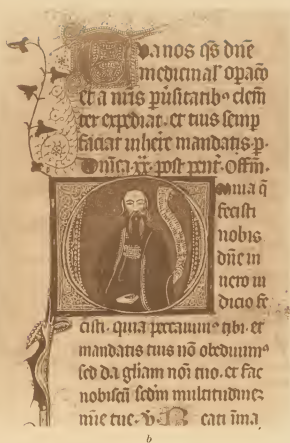 Tua nos qs dñe
medicinal' opaćo
et a nr̃is pũsitatib⁹ clem̃
ter expediat. et tuis semp
faciat inhere mandatis. p.
Dñica. xx. post pent. Offm̃.
Omnia q̃
fecisti
nobis
dñe in
uero iu
dicio fe
cisti. quia peccauim⁹ tibi. et
mandatis tuis nõ obediuim⁹
sed da gl̃iam noĩ tuo. et fac
nobiscũ scd̃m multitudinez
mĩe tue. V̾. Beati ĩma
b